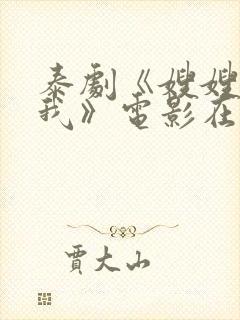 泰劇《嫂嫂
我》電影在
賈大山